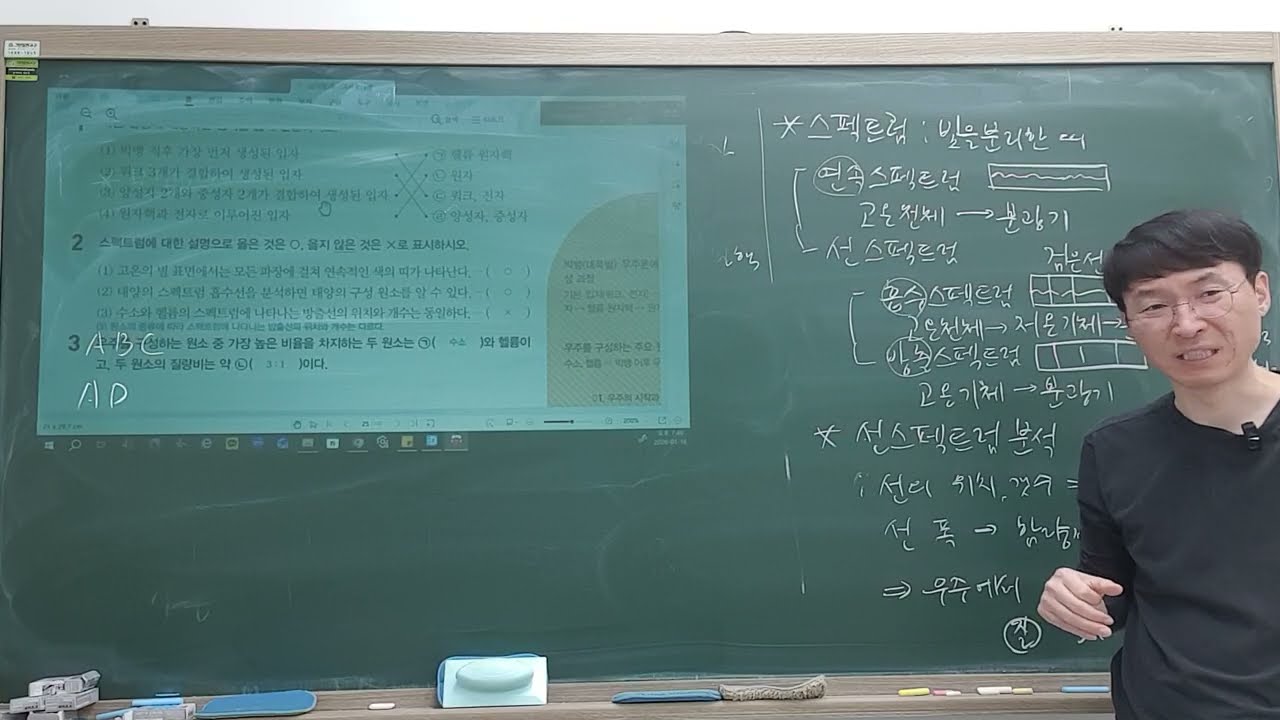 (1) 빅뱅 직후 가장 먼저 생성된 입자
㉠ 헬륨 원자핵
(2) 쿼크 3개가 결합하여 생성된 입자
㉡ 원자
(3) 양성자 2개와 중성자 2개가 결합하여 생성된 입자
㉢ 쿼크, 전자
(4) 원자핵과 전자로 이루어진 입자
㉣ 양성자, 중성자
2 스펙트럼에 대한 설명으로 옳은 것은 ○, 옳지 않은 것은 ×로 표시하시오.
(1) 고온의 별 표면에서는 모든 파장에 걸쳐 연속적인 색의 띠가 나타난다. ( ○ )
(2) 태양의 스펙트럼 흡수선을 분석하면 태양의 구성 원소를 알 수 있다. ( ○ )
(3) 수소와 헬륨의 스펙트럼에 나타나는 방출선의 위치와 개수는 동일하다. ( × )
(3) 원소의 종류에 따라 스펙트럼에 나타나는 방출선의 위치와 개수는 다르다.
3 구성하는 원소 중 가장 높은 비율을 차지하는 두 원소는 ㉠( 수소 )와 헬륨이
고, 두 원소의 질량비는 약 ㉡( 3:1 )이다.
ABC
AD
성 과정
01. 우주의 시작과
200%
* 스펙트럼 : 빛을 분리한 띠
연속스펙트럼
고온천체 → 분광기
선 스펙트럼
검은선
흡수스펙트럼
고온천체 → 저온기체 →
방출스펙트럼
고온기체 → 분광기
* 선스펙트럼 분석
: 선의 위치, 갯수 =
선 폭 →
⇒ 우주에서
질